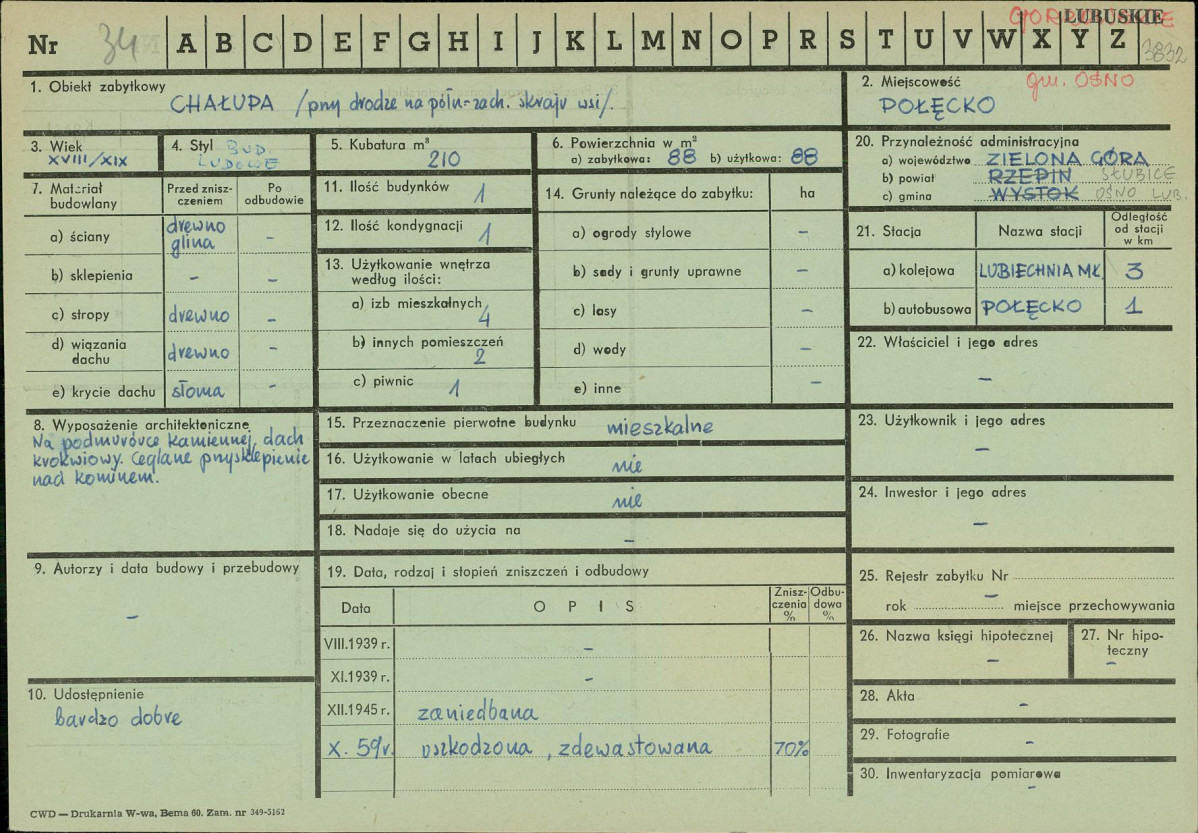 Nr 34 A B C D E F G H I J K L M N O P R S T U V W X Y Z
LUBUSKIE
3832
1. Obiekt zabytkowy
CHAŁUPA /przy drodze na półn-zach. skraju wsi/.
2. Miejscowość gm. OŚNO
POŁĘCKO
3. Wiek
XVIII/XIX
4. Styl BUD
LUDOWE
5. Kubatura m³
210
6. Powierzchnia w m²
a) zabytkowa: 88 b) użytkowa: 88
20. Przynależność administracyjna
a) województwo ZIELONA GÓRA
b) powiat RZEPIN SŁUBICE
c) gmina WYSTOK OŚNO LUB.
7. Materiał budowlany
Przed zniszczeniem
Po odbudowie
a) ściany drewno glina -
b) sklepienia - -
c) stropy drewno -
d) wiązania dachu drewno -
e) krycie dachu słoma -
11. Ilość budynków 1
12. Ilość kondygnacji 1
13. Użytkowanie wnętrza według ilości:
a) izb mieszkalnych 4
b) innych pomieszczeń 2
c) piwnic 1
14. Grunty należące do zabytku: ha
a) ogrody stylowe -
b) sady i grunty uprawne -
c) lasy -
d) wody -
e) inne -
21. Stacja Nazwa stacji Odległość od stacji w km
a) kolejowa LUBIECHNIA MŁ. 3
b) autobusowa POŁĘCKO 1
22. Właściciel i jego adres
-
8. Wyposażenie architektoniczne
Na podmurówce kamiennej, dach
krokwiowy. Ceglane przysklepienie
nad kominem.
15. Przeznaczenie pierwotne budynku mieszkalne
16. Użytkowanie w latach ubiegłych nie
17. Użytkowanie obecne nie
18. Nadaje się do użycia na -
23. Użytkownik i jego adres
-
24. Inwestor i jego adres
-
9. Autorzy i data budowy i przebudowy
-
10. Udostępnienie
bardzo dobre
19. Data, rodzaj i stopień zniszczeń i odbudowy
Data O P I S Zniszczenia % Odbudowa %
VIII.1939 r. -
XI.1939 r. -
XII.1945 r. zaniedbana
X. 59r. uszkodzona, zdewastowana 70%
25. Rejestr zabytku Nr
-
rok miejsce przechowywania
26. Nazwa księgi hipotecznej
-
27. Nr hipoteczny
-
28. Akta
-
29. Fotografie
-
30. Inwentaryzacja pomiarowa
-
CWD — Drukarnia W-wa, Bema 60. Zam. nr 349-5162